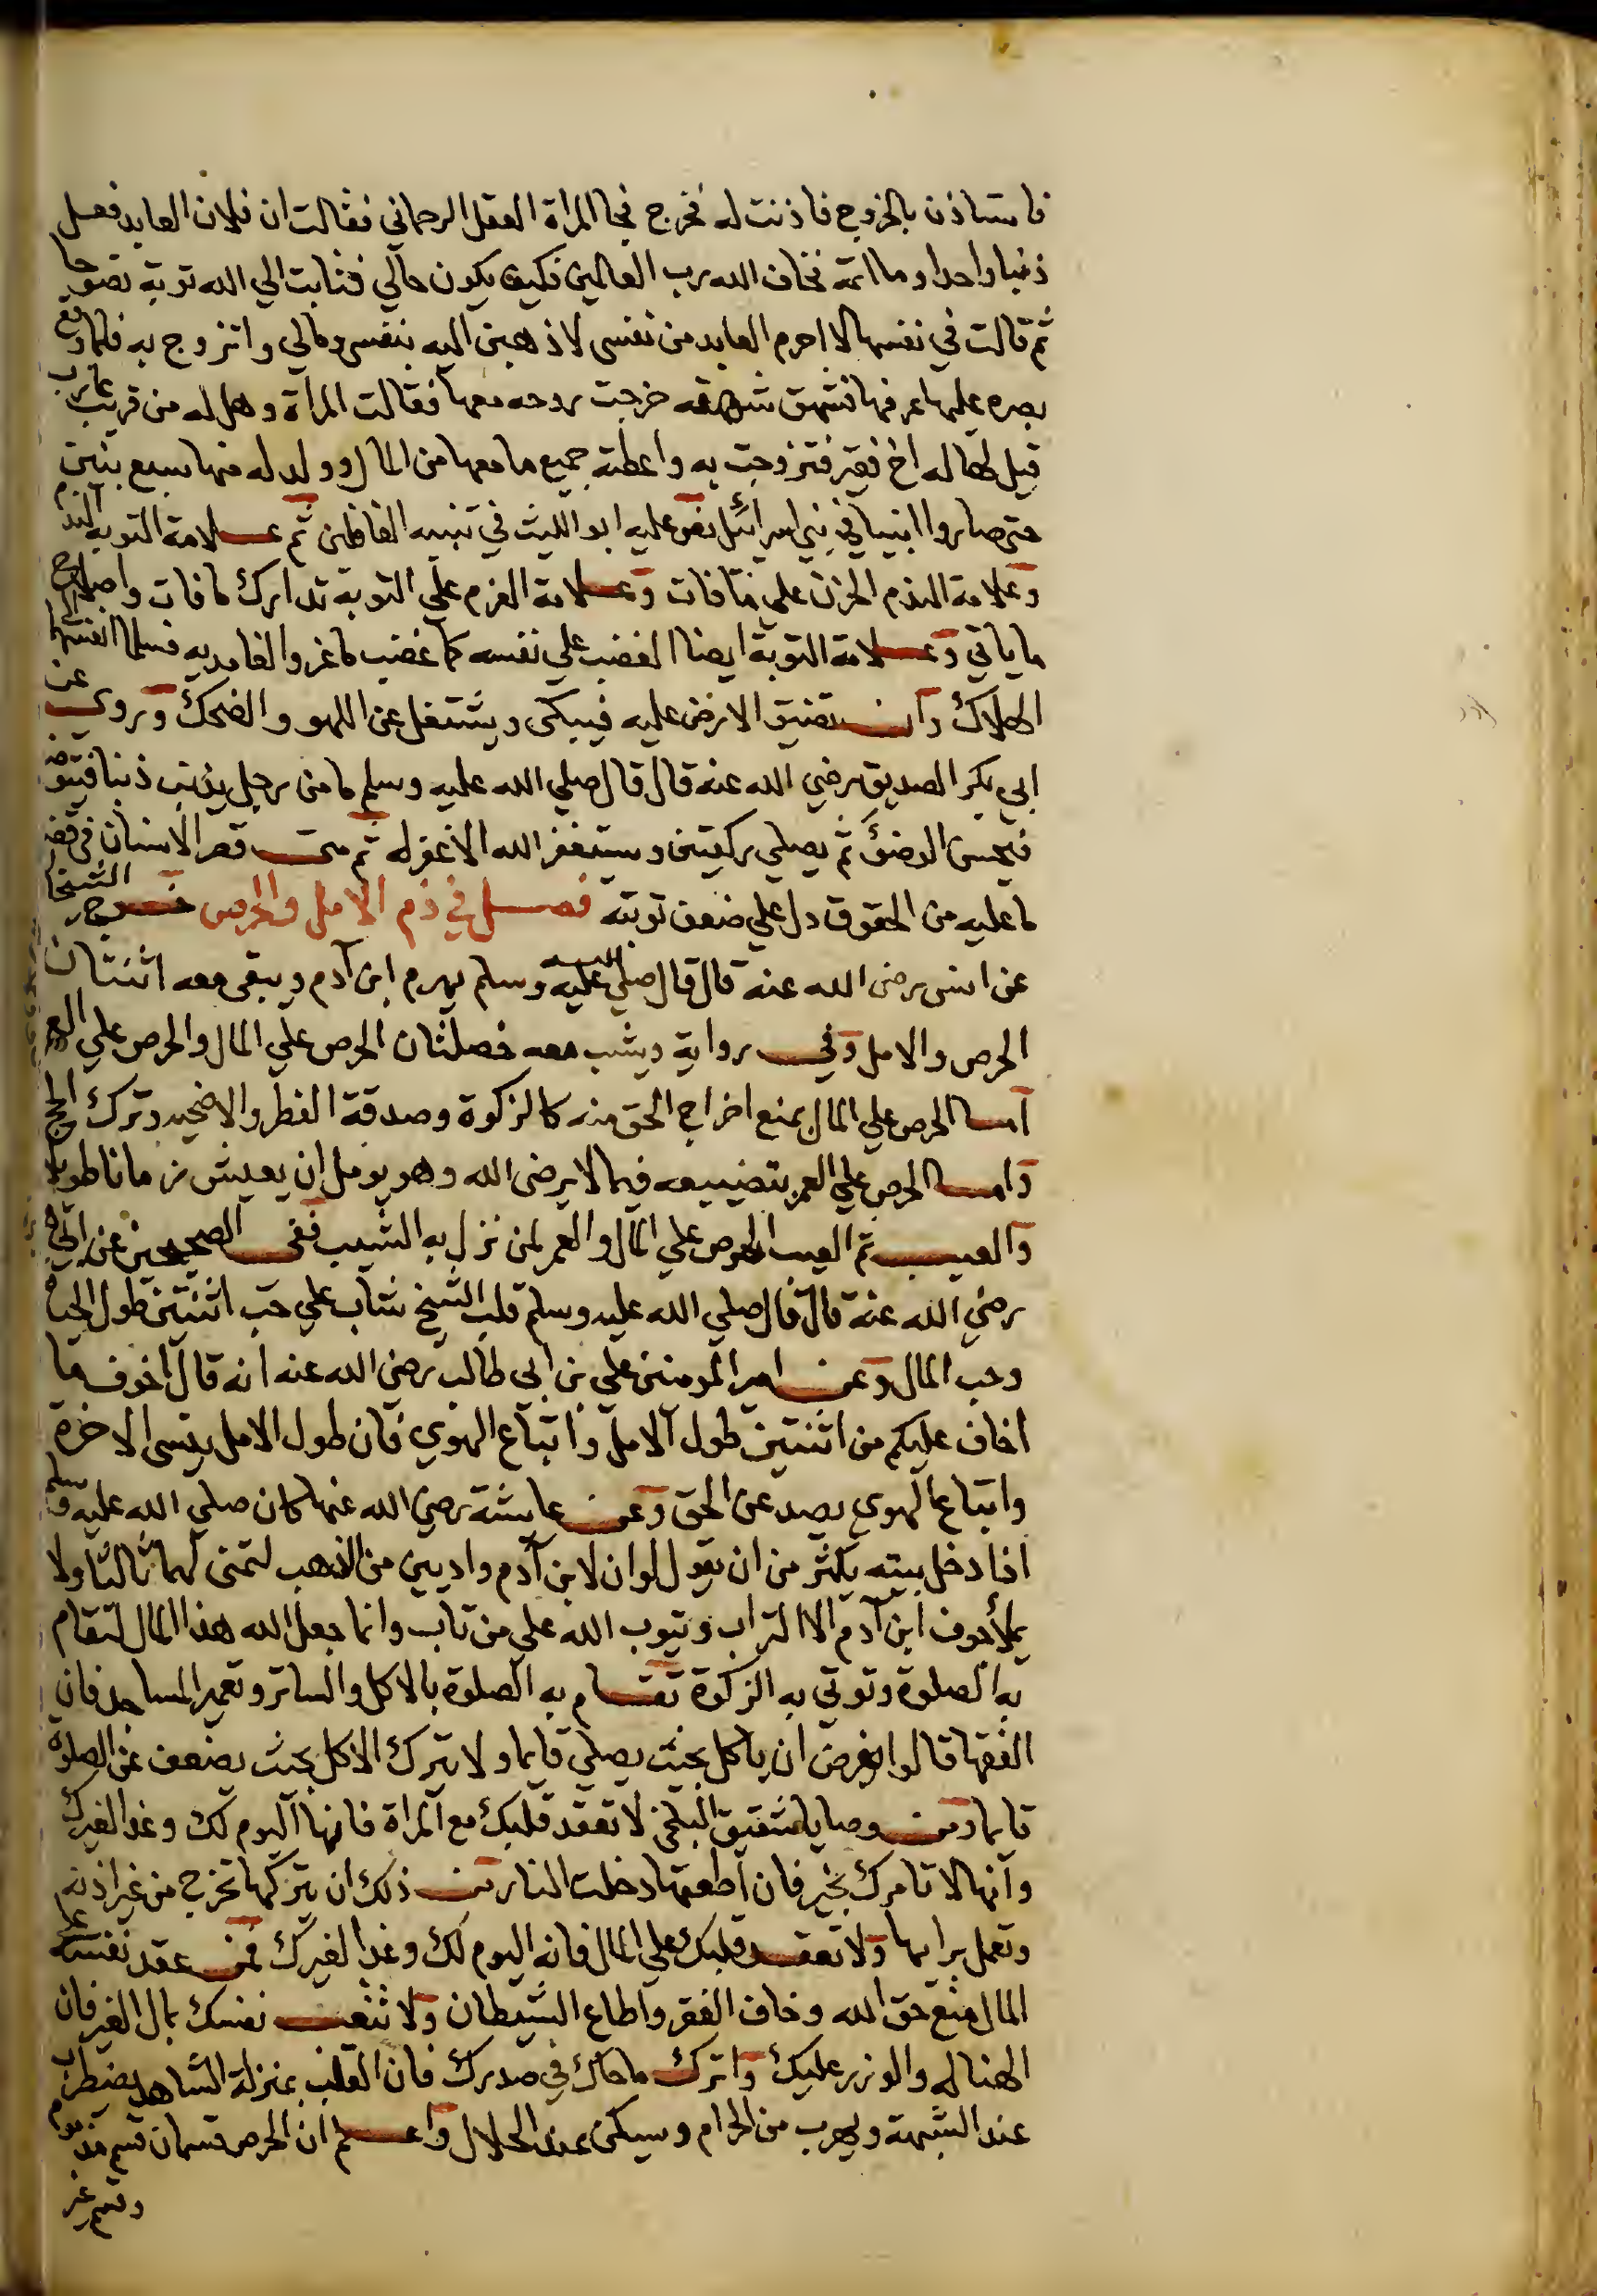 فاستاذن بالخروج فاذنت له فخرج فجا المراة العقل الرحماني فقالت ان فلان العابد فعل
ذنبا واحدا وما اتمه فخاف الله رب العالمين فكيف يكون حالي فتابت الي الله توبة نصوحا
ثم قالت في نفسها لا احرم العابد من نفسي لاذهبن اليه بنفسي ومالي واتزوج به فلما وقع
بصره عليها عرفها فشهق شهقه خرجت روحه معها فقالت المراة وهل له من قريب
قيل لها له اخ فقير فتزوجت به واعطته جميع ما معها من المال وولد له منها سبع بنين
حتي صاروا انبيا في بني اسرائل نص عليه ابو الليث في تنبيه الغافلين ثم علامة التوبه الندم
وعلامة الندم الحزن علي ما فات وعلامة العزم علي التوبة تدارك ما فات واصلاح
ما ياتي وعلامة التوبة ايضا الغضب علي نفسه كما غضب ماعز والغامديه فسلما انفسهما الي
الهلاك وان تضيق الارض عليه فيبكي ويشتغل عن اللهو والضحك وروي عن
ابي بكر الصديق رضي الله عنه قال قال صلي الله عليه وسلم ما من رجل يذنب ذنبا فيتوضا
فيحسن الوضؤ ثم يصلي ركعتين ويستغفر الله الا غفر له ثم متي قصر الانسان في قضا
ما عليه من الحقوق دل علي ضعف توبته فصل في ذم الامل والحرص خرج الشيخان
عن انس رضي الله عنه قال قال صلي الله عليه وسلم يهرم ابن آدم ويبقي معه اثنتان
الحرص والامل وفي رواية ويشب معه خصلتان الحرص علي المال والحرص علي العمر
اما الحرص علي المال بمنع اخراج الحق منه كالزكوة وصدقة الفطر والاضحيه وترك الحج
واما الحرص علي العمر بتضييعه فيما لا يرضي الله وهو يومل ان يعيش زمانا طويلا
والعيب ثم العيب الحرص علي المال والعمر لمن نزل به الشيب ففي الصحيحين عن ابي
رضي الله عنه قال قال صلي الله عليه وسلم قلب الشيخ شاب علي حب اثنتين طول الحياة
وحب المال وعن امير المومنين علي بن ابي طالب رضي الله عنه انه قال اخوف ما
اخاف عليكم من اثنتين طول الامل واتباع الهوي فان طول الامل ينسي الاخرة
واتباع الهوي يصد عن الحق وعن عايشة رضي الله عنها كان صلي الله عليه وسلم
اذا دخل بيته يكثر من ان يقول لو ان لابن آدم واديين من الذهب لتمني لهما ثالثا ولا
يملأ جوف ابن آدم الا التراب ويتوب الله علي من تاب وانما جعل الله هذا المال لتقام
به الصلوة وتوتي به الزكوة تقام به الصلوة بالاكل والساتر وتعمير المساجد فان
الفقها قالوا يفرض ان ياكل بحيث يصلي قايما ولا يترك الاكل بحيث يضعف عن الصلوة
قايما ومن وصايا شقيق البلخي لا تعقد قلبك مع المراة فانها اليوم لك وغدا لغيرك
وانها لا تامرك بخير فان اطعتها دخلت النار من ذلك ان يتركها تخرج من غير اذنه
وتعمل برايها ولا تعقد قلبك علي المال فانه اليوم لك وغدا لغيرك فمن عقد نفسه علي
المال منع حق الله وخاف الفقر واطاع الشيطان ولا تتعب نفسك بمال الغير فان
الهنا له والوزر عليك واترك ما حاك في صدرك فان القلب بمنزلة الشاهد يضطرب
عند الشبهة ويهرب من الحرام ويسكن عند الحلال واعلم ان الحرص قسمان قسم مذموم
وقسم غير